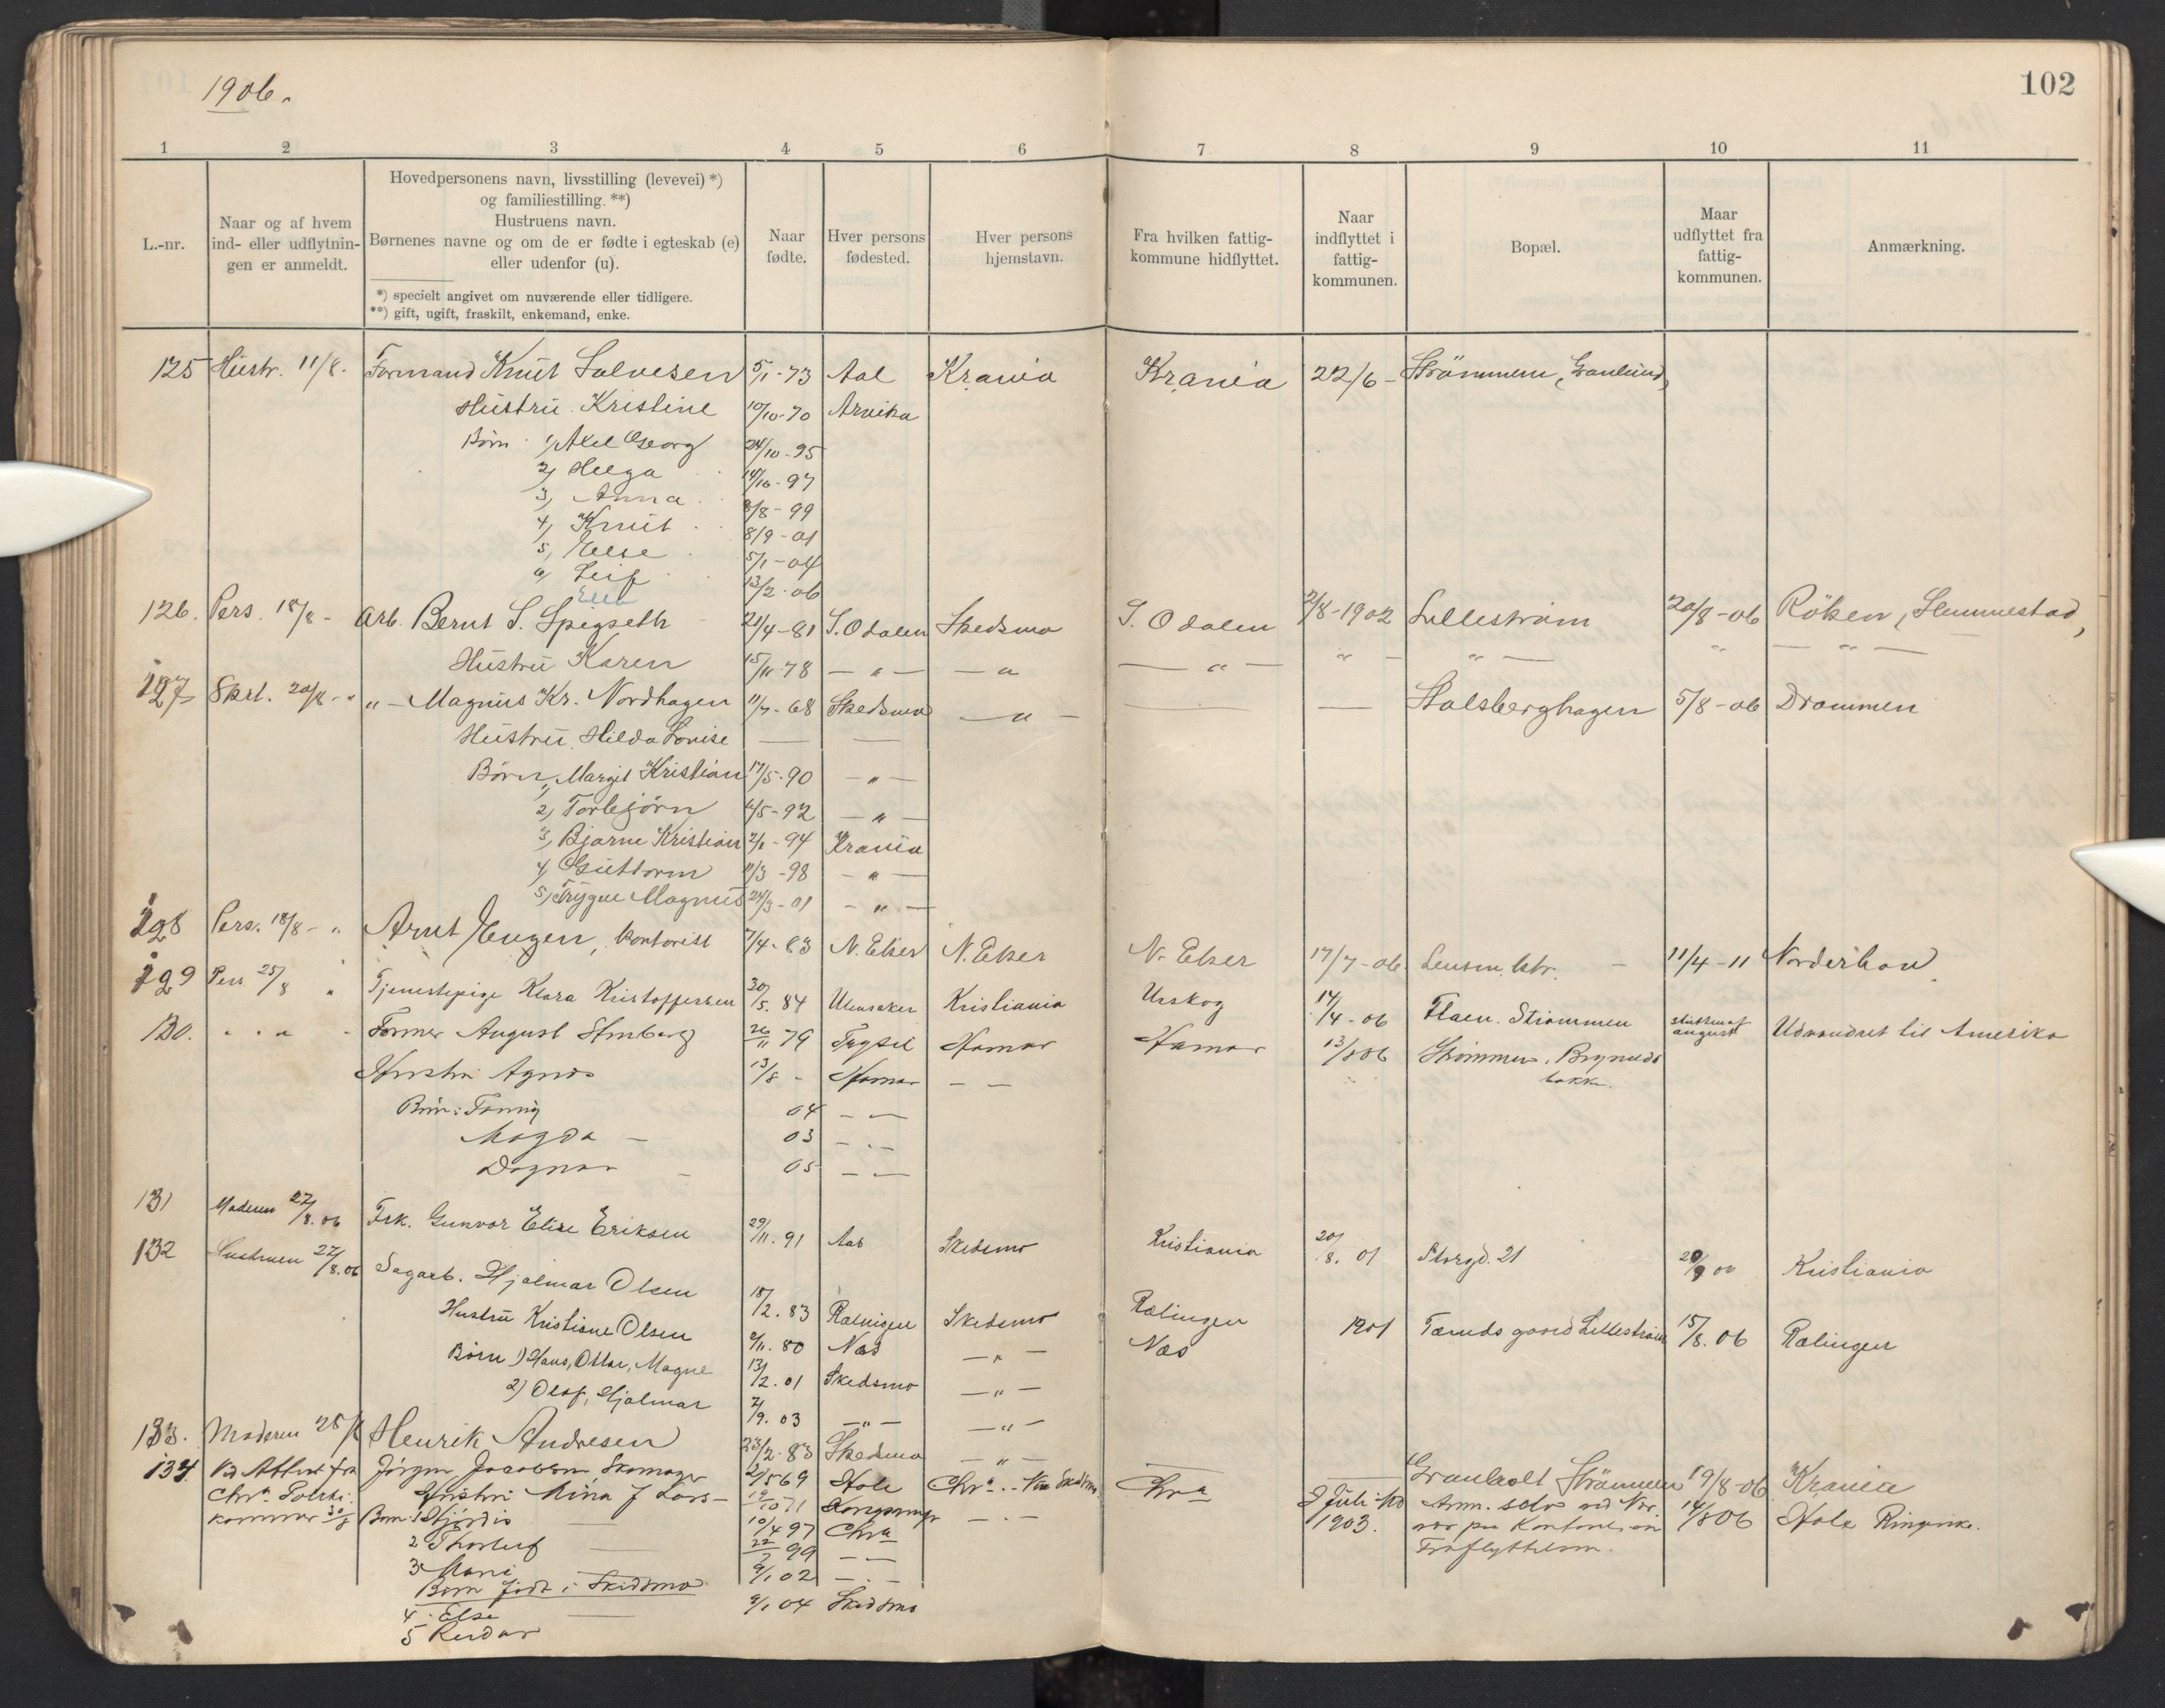 1906.
102
1 2 3 4 5 6 7 8 9 10 11
L.-nr.
Naar og af hvem
ind- eller udflytnin-
gen er anmeldt.
Hovedpersonens navn, livsstilling (levevei) *)
og familiestilling. **)
Hustruens navn.
Børnenes navne og om de er fødte i egteskab (e)
eller udenfor (u).
*) specielt angivet om nuværende eller tidligere.
**) gift, ugift, fraskilt, enkemand, enke.
Naar
fødte.
Hver persons
fødested.
Hver persons
hjemstavn.
Fra hvilken fattig-
kommune hidflyttet.
Naar
indflyttet i
fattig-
kommunen.
Bopæl.
Maar
udflyttet fra
fattig-
kommunen.
Anmærkning.
125 Hustr. 11/8. Formand Knut Salvesen 5/1-73 Aal Krania Krania 22/6 - Strömmen, Granlund,
Hustru Kristine 10/10-70 Arvika
Börn 1, Axel Georg 24/10-95
2, Helga 14/10-97
3, Anna 8/8-99
4, Knut 8/9-01
5, Else 5/1-04
6, Leif 13/2-06
Ella
126. Pers. 18/8 - Arb. Bernt S. Spigseth 21/4-81 S. Odalen Skedsmo S. Odalen 2/8-1902 Lilleström 20/8-06 Röken, Slemmestad,
Hustru Karen 15/11-78 — " — — " — " — " — " — " — " —
127 Skrl. 20/8 - " " - Magnus Kr. Nordhagen 11/7-68 Skedsmo — " — — — Stalsberghagen 5/8-06 Drammen
Hustru Hilda Lovise — —
Börn 1, Margit Kristian 17/5-90 — " —
2, Torbjörn 4/5-92 — " —
3, Bjarne Kristian 2/1-94 Krania
4, Guttorm 11/3-98 — " —
5, Trygve Magnus 24/3-01 — " —
128 Pers. 18/8 - " Arnt Engen, kontorist 7/4-83 N. Eker N. Eker N. Eker 17/7-06 Lensm. ktr. - 11/4-11 Norderhov
129 Pers 25/8 " Tjenestepige Klara Kristoffersen 30/5. 84 Ulensaker Kristiania Urskog 14/4-06 Flaen. Strömmen slutten af august Udvandret til Amerika
130. " " Former August Stenberg 26/11 79 Trysil Hamar Hamar 13/8 06 Strömmen. Brynilds
bakke.
Hustru Agnes 13/8 - Hamar — —
Börn: Fanny 04 — —
Magda - 03 — —
Dagmar - 05 — —
131 Moderen 27/8.06 Frk. Gunvor Elise Eriksen 29/11. 91 Aas Skedsmo Kristiania 20/8. 01 Storgd. 21 20/9 06 Kristiania
132 Hustruen 27/8.06 Sagarb. Hjalmar Olsen 18/2. 83 Rælingen Skedsmo Rælingen 1901 Tærudsgaard Lilleström 15/8. 06 Rælingen
Hustru Kristiane Olsen 9/11. 80 Næs — " — Næs
Börn 1) Hans, Ottar, Magne 13/2. 01 Skedsmo — " —
2) Olaf, Hjalmar 7/9. 03 — " — — " —
133. Moderen 28/8 Henrik Andresen 23/2-83 Skedsmo — " — — — Granholt Strömmen 19/8-06 Krania
134 Jörgen Jacobsen Skomager 2/5 69 Hole Chra Chra 2 Juli 1903. Anm. selv 14/8 06 Hole Ringerike.
Chra Politi
kammer 30/8
Hustru Mina f Lars- 19/10 71
Börn 1 Hjördis 10/4 97 Chra
2 Thorleif 22/7 99 — —
3 Marie 9/1 02 — —
Fraflyttelsen.
Born födt i Skedsmo
4 Else 9/1 04 Skedsmo
5 Reidar